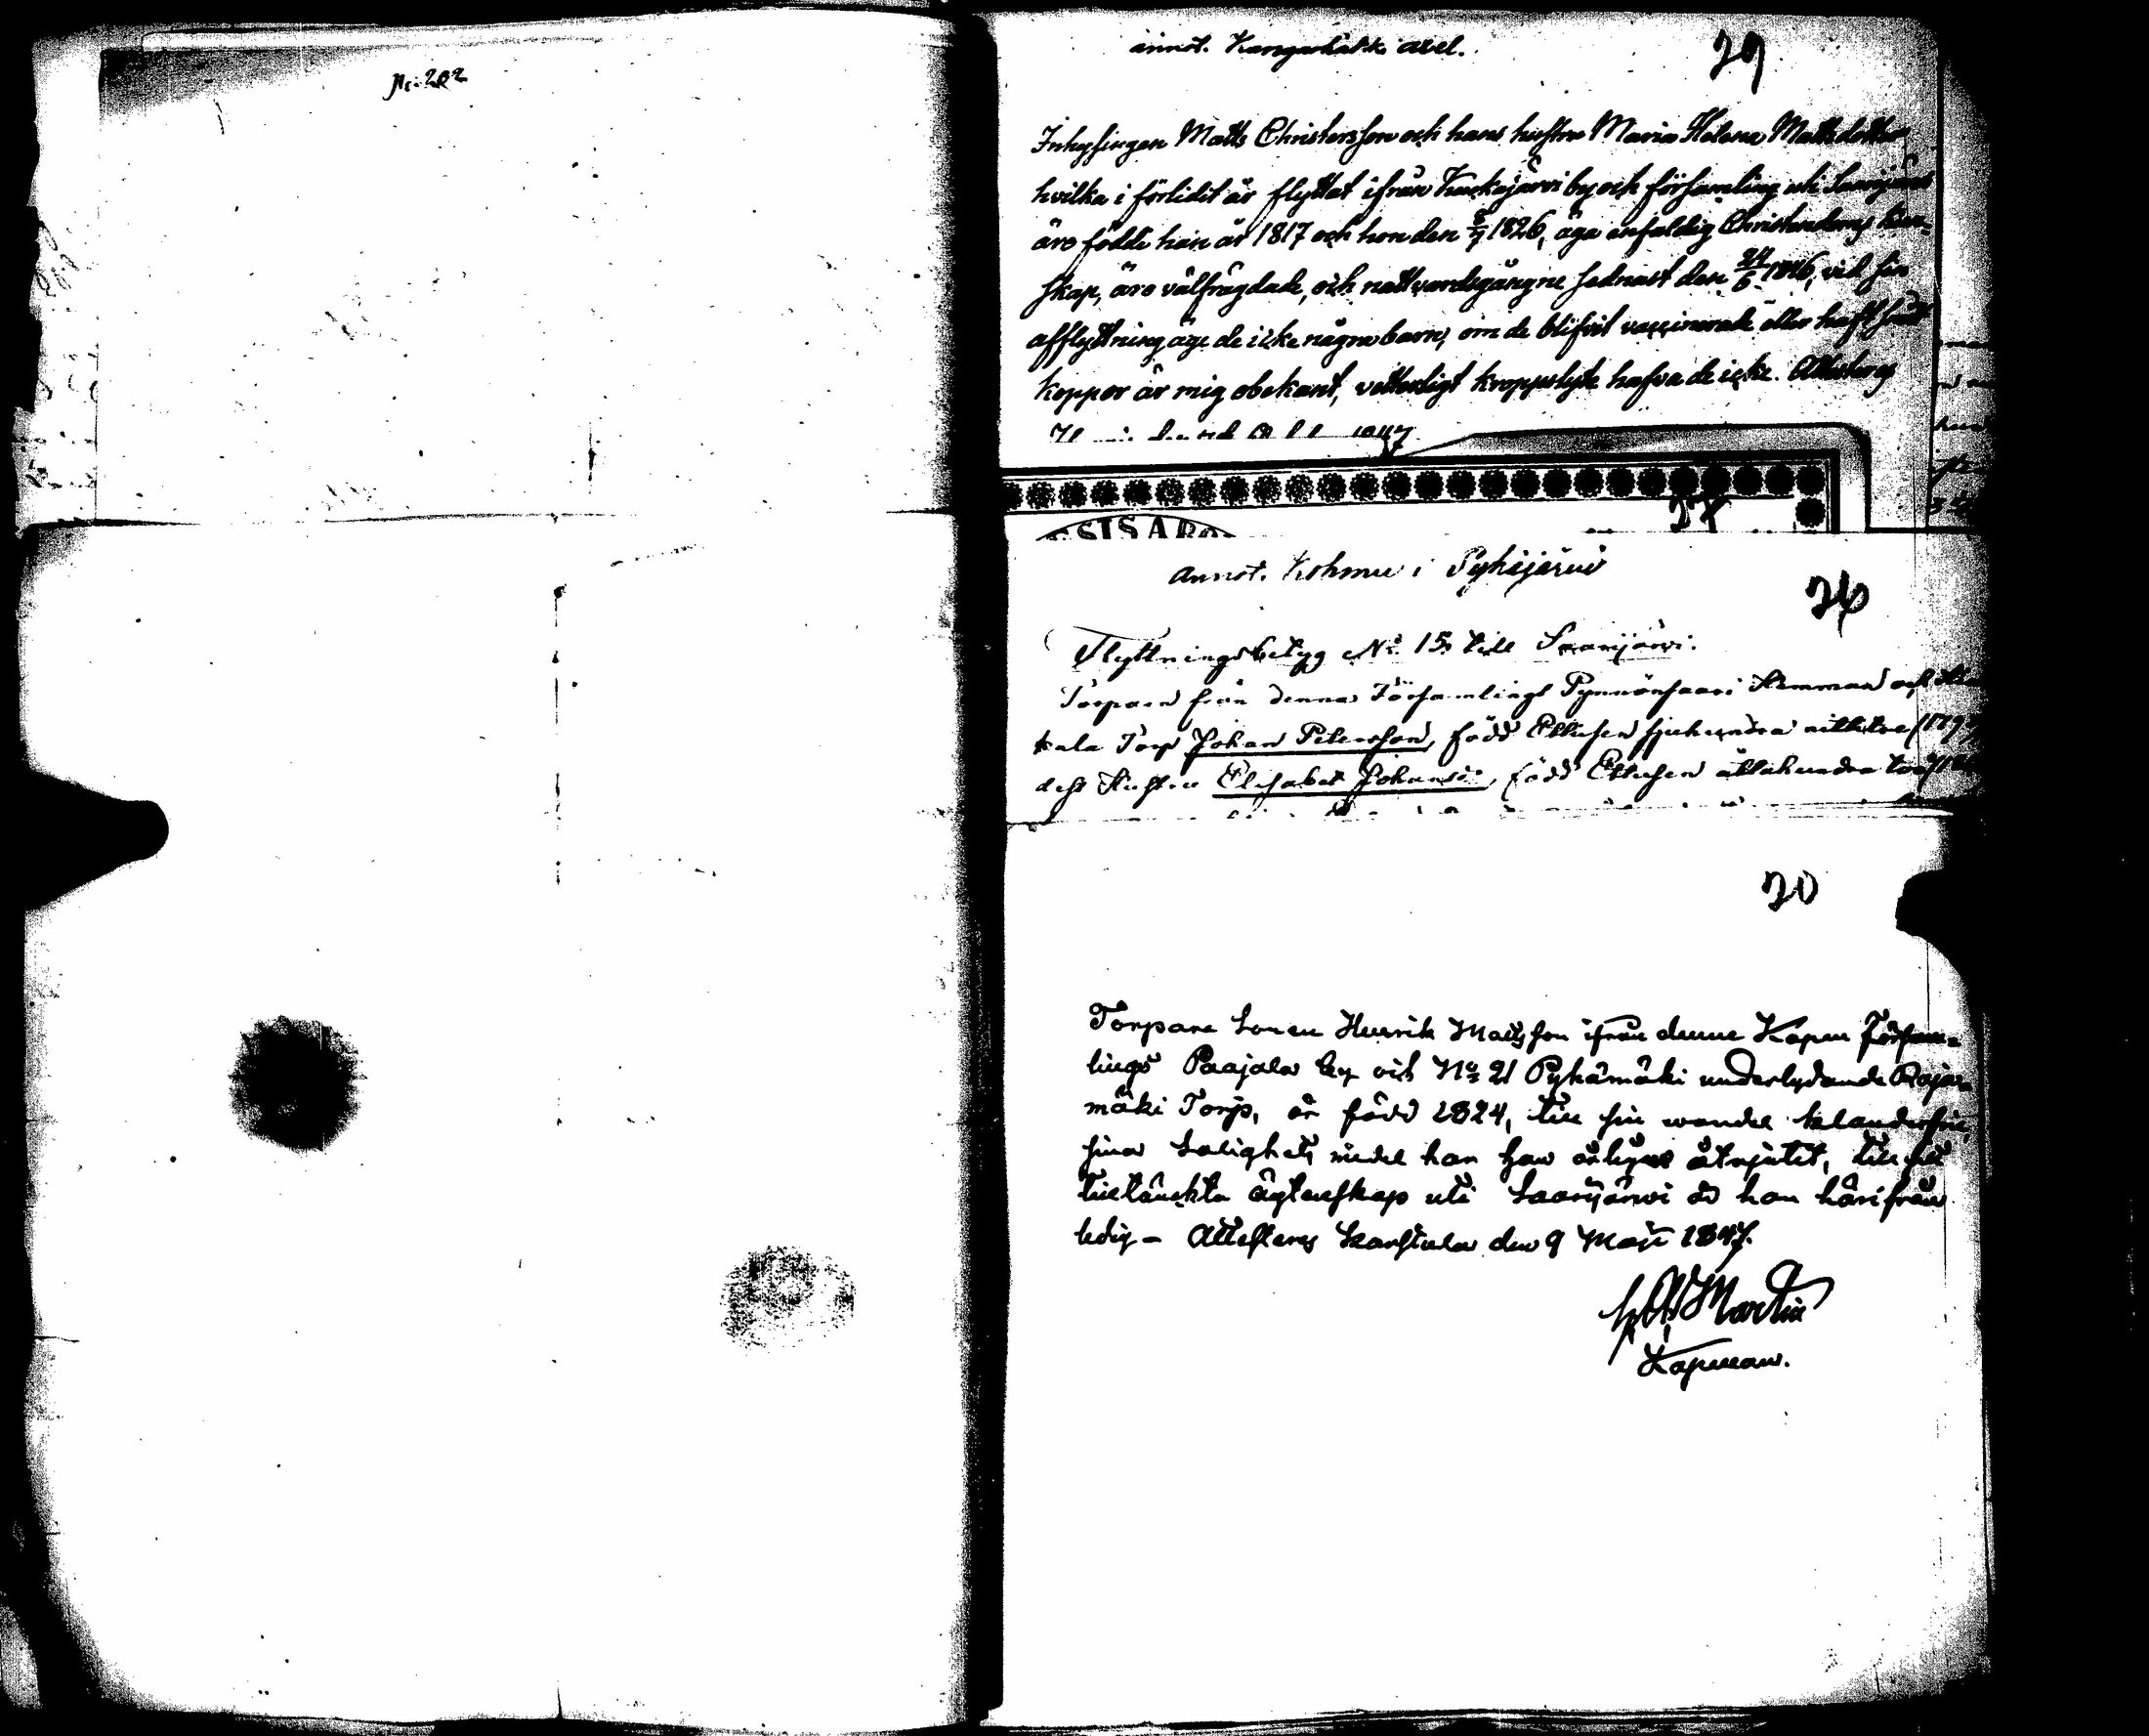 No: 202
annot. Kangarhakk. axel.
29
Inhysingen Matts Christersson och hans hustru Maria Helena Mattsdotter
hvilka i förlidit år flyttat ifrån Kuckajärvi by och församling uti Saarijärvi
äro födde han år 1817 och hon den 8/7 1826, äga enfaldig Christendoms kun-
skap, äro välfrägdade, och nattvardsgångne sednast den 24/6 1846, vid sin
afflyttning äge de icke några barn, om de blifvit vaccinerade eller haft
koppor är mig obekant, vetterligt kroppslyte hafva de icke. Attesteras
1847
27
SIS ABO
annot. Kohmu i Pyhäjärvi
26
Flyttningsbetyg No. 15 till Saarijärvi.
Torparen från denna Församlings Pymnönsaari Hemman och
kala Torp Johan Petersson, född Ettusen sjuhundra nittitre (179
dess Hustru Elisabet Johansd:, född Ettusen åttahundra
20
Torpare Sonen Henrik Mattsson ifrån denne Kapell Församl-
lings Paajala by och No 21 Pyhämäki underlydande Raja-
mäki Torp, är född 1824, till sin wandel klanderfri,
sina Salighets medel han haw årligen åtnjutit, till sitt
tilltänckta ägtenskap uti Saarijärwi är han härifrån
ledig - Attesteras Karstula den 9 Maji 1847.
Martin
Kapellan.